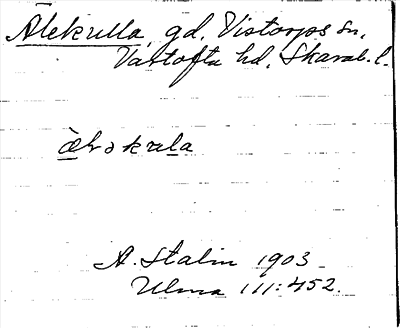 Älekulla, gd, Vistorps sn,
Vartofta hd, Skarab. l.
A. Stalin 1903
Ulma 111:452.